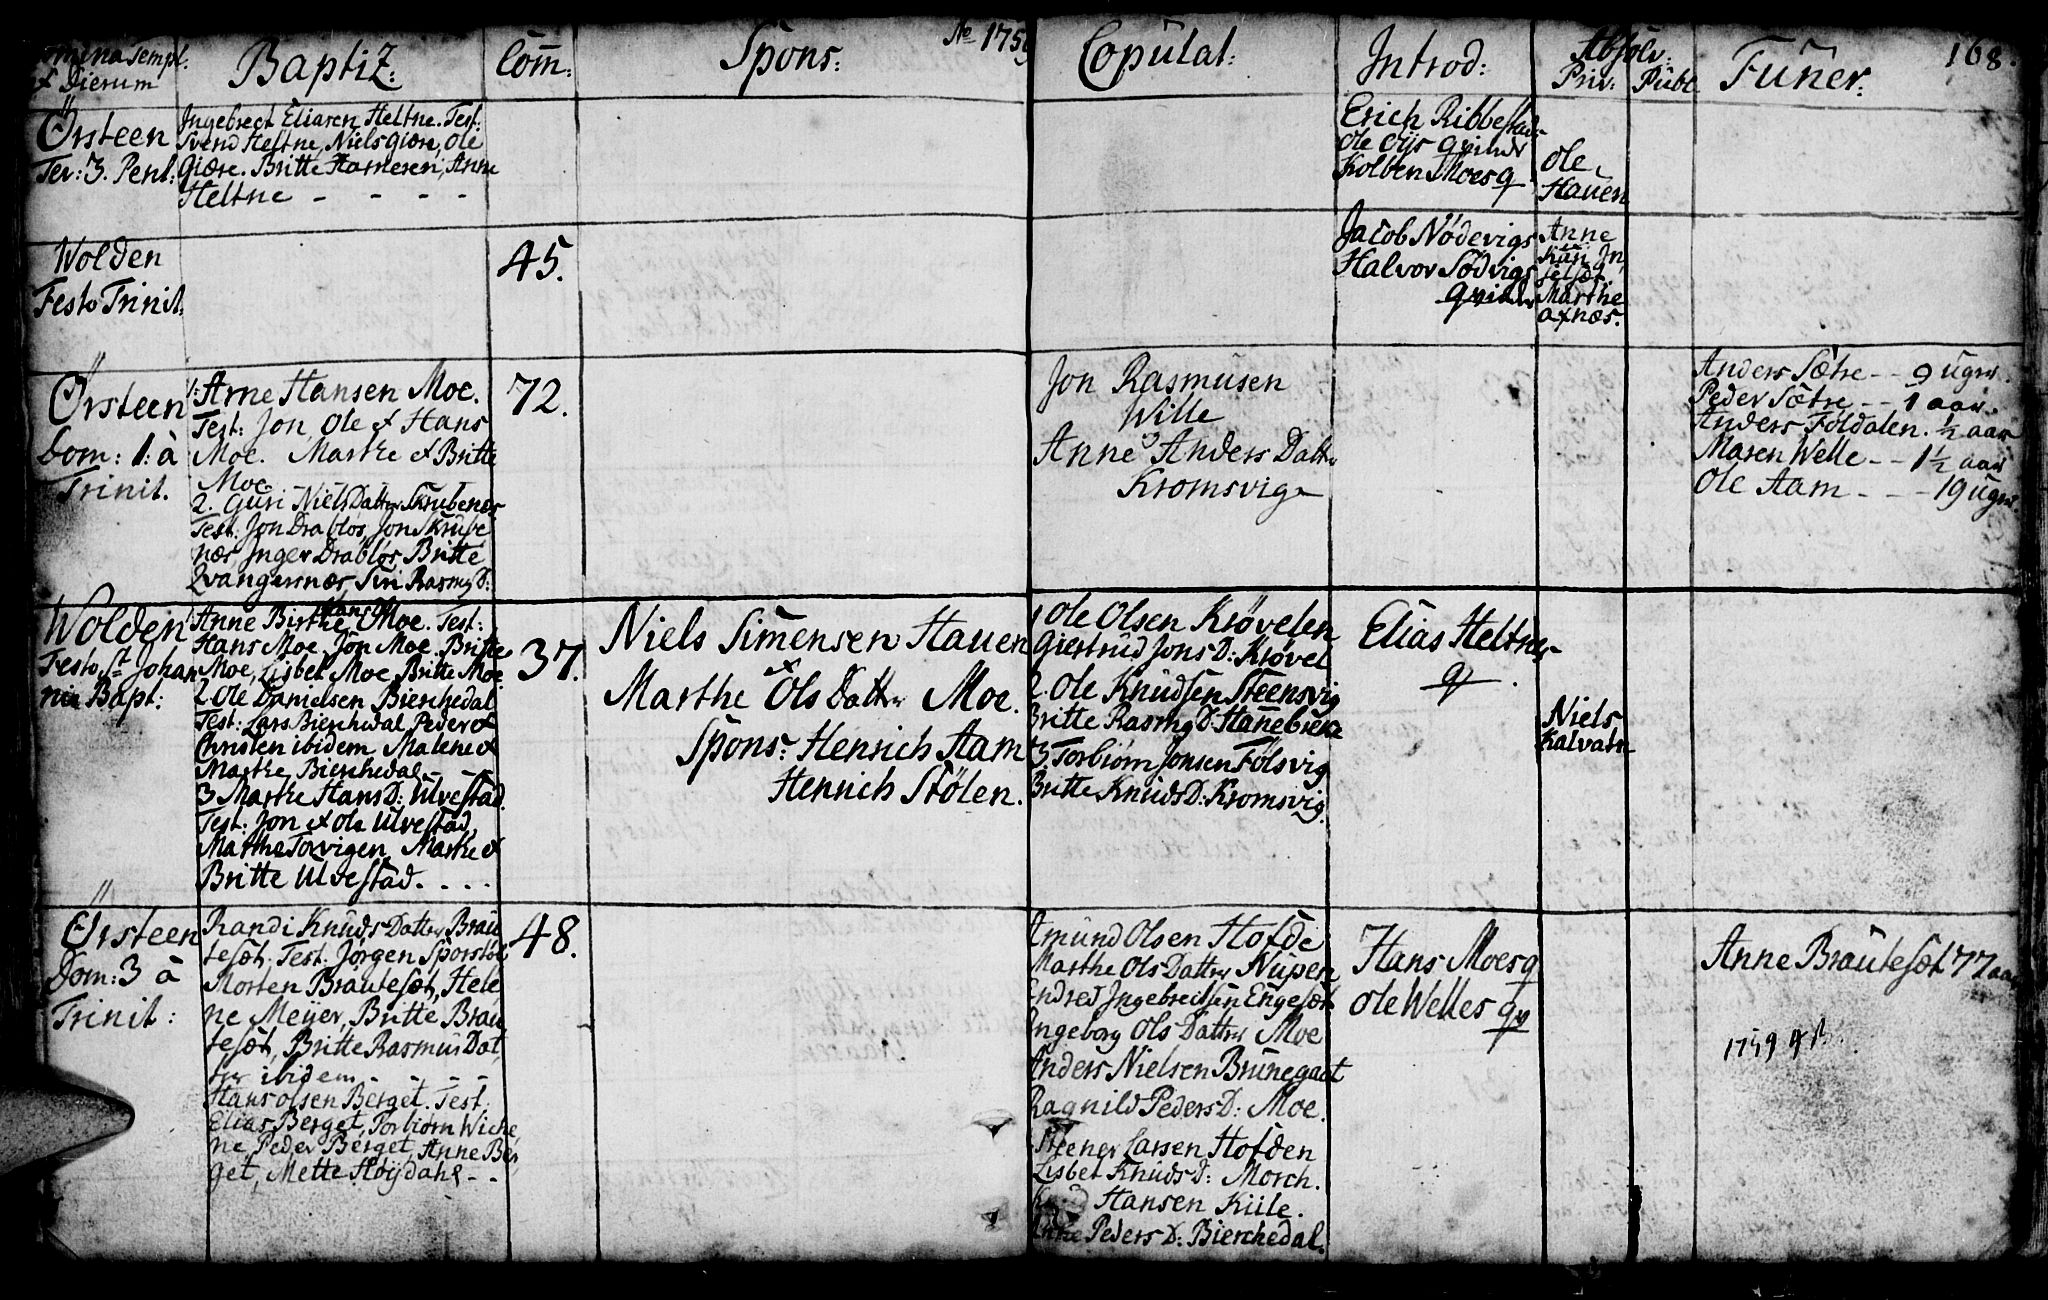 Nomina Templ.
& Dierum
Baptiz:
Com̄:
Spons:
Ao 1759
Copulat:
Introd:
Absolv:
Priv: Publ
Funer:
168.
Ørsteen
Fer: 3. Pent:
Ingebrect Eliasen Heltne. Test:
Svend Heltne, Niels Giøre, Ole
Giøre. Britte Hamesen, Anne
Heltne - - - -
Erich Ribbestad
Ole Oÿs Qvinder
Kolben Moes q
Ole
Hauen
Wolden
Festo Trinit.
45.
Jacob Nödevigs
Halvor Södvigs
Qvinder
Anne
Kari In
selset
Marthe
axnæs.
Ørsteen
Dom: 1: à
Trinit.
1: Arne Hansen Moe.
Test: Jon Ole & Hans
Moe. Marthe & Britte
Moe
2. Guri Niels Datter Skrubenæs
Test: Jon Drabløs, Jon Skrube
næs Inger Drabløs, Britte
Qvangersnæs, Siri Rasmus D:
72.
Jon Rasmusen
Wille
Anne Anders Datter
Kromsvig
Anders Sætre - - 9 uger.
Peder Sætre - - 1 aar.
Anders Foldalen. ½ aar
Maren Welle - - 1½ aar
Ole Aam - - - 19 uger.
Wolden
Festo St Johan
nis Bapt:
1 Anne Birthe Hans D Moe. Test:
Hans Moe, Jon Moe. Britte
Moe, Lisbet Moe, Britte Moe
2. Ole Danielsen Bierchedal
Test: Lars Bierchedal, Peder &
Christen ibidem Malene &
Marthe Bierchedal - -
3 Marthe Hans D: Ulvestad.
Test: Jon & Ole Ulvestad,
Marthe Torvigen Marthe &
Britte Ulvestad. . . .
37.
Niels Simensen Hauen
&
Marthe Ols Datter Moe.
Spons: Henrich Aam
Henrich Stölen.
1 Ole Olsen Krøvelen
Giertrud Jons D: Krøvel
2. Ole Knudsen Steensvig
Britte Rasmus D: Hannebiere
3. Torbiørn Jonsen Folsvig
Britte Knuds D: Kromsvig.
Elias Heltnes
q.
Niels
Kalvatn
Ørsteen
Dom: 3 à
Trinit:
Randi Knuds Datter Brau
tesæt. Test: Jørgen Sporstøl
Morten Brautesæt, Hele
ne Meÿer, Britte Brau
tesæt, Britte Rasmus Dat
ter ibidem - - - -
Hans Olsen Berget. Test:
Elias Berget, Torbiørn Wiche
ne Peder Berget, Anne Ber
get, Mette Höÿdahl - -
48.
Amund Olsen Hofde
Marthe Ols Datter Nupen
Endred Ingebreitsen Engesæt
Ingeborg Ols Datter Moe
Anders Nielsen Brunegaat
Ragnild Peders D: Moe.
Steener Larsen Hofden
Lisbet Knuds D: Morch.
Hansen Kiile.
Anne Peders D: Bierchedal.
Hans Moes q
Ole Welles qv
Anne Brautesæt 77 aar
1759